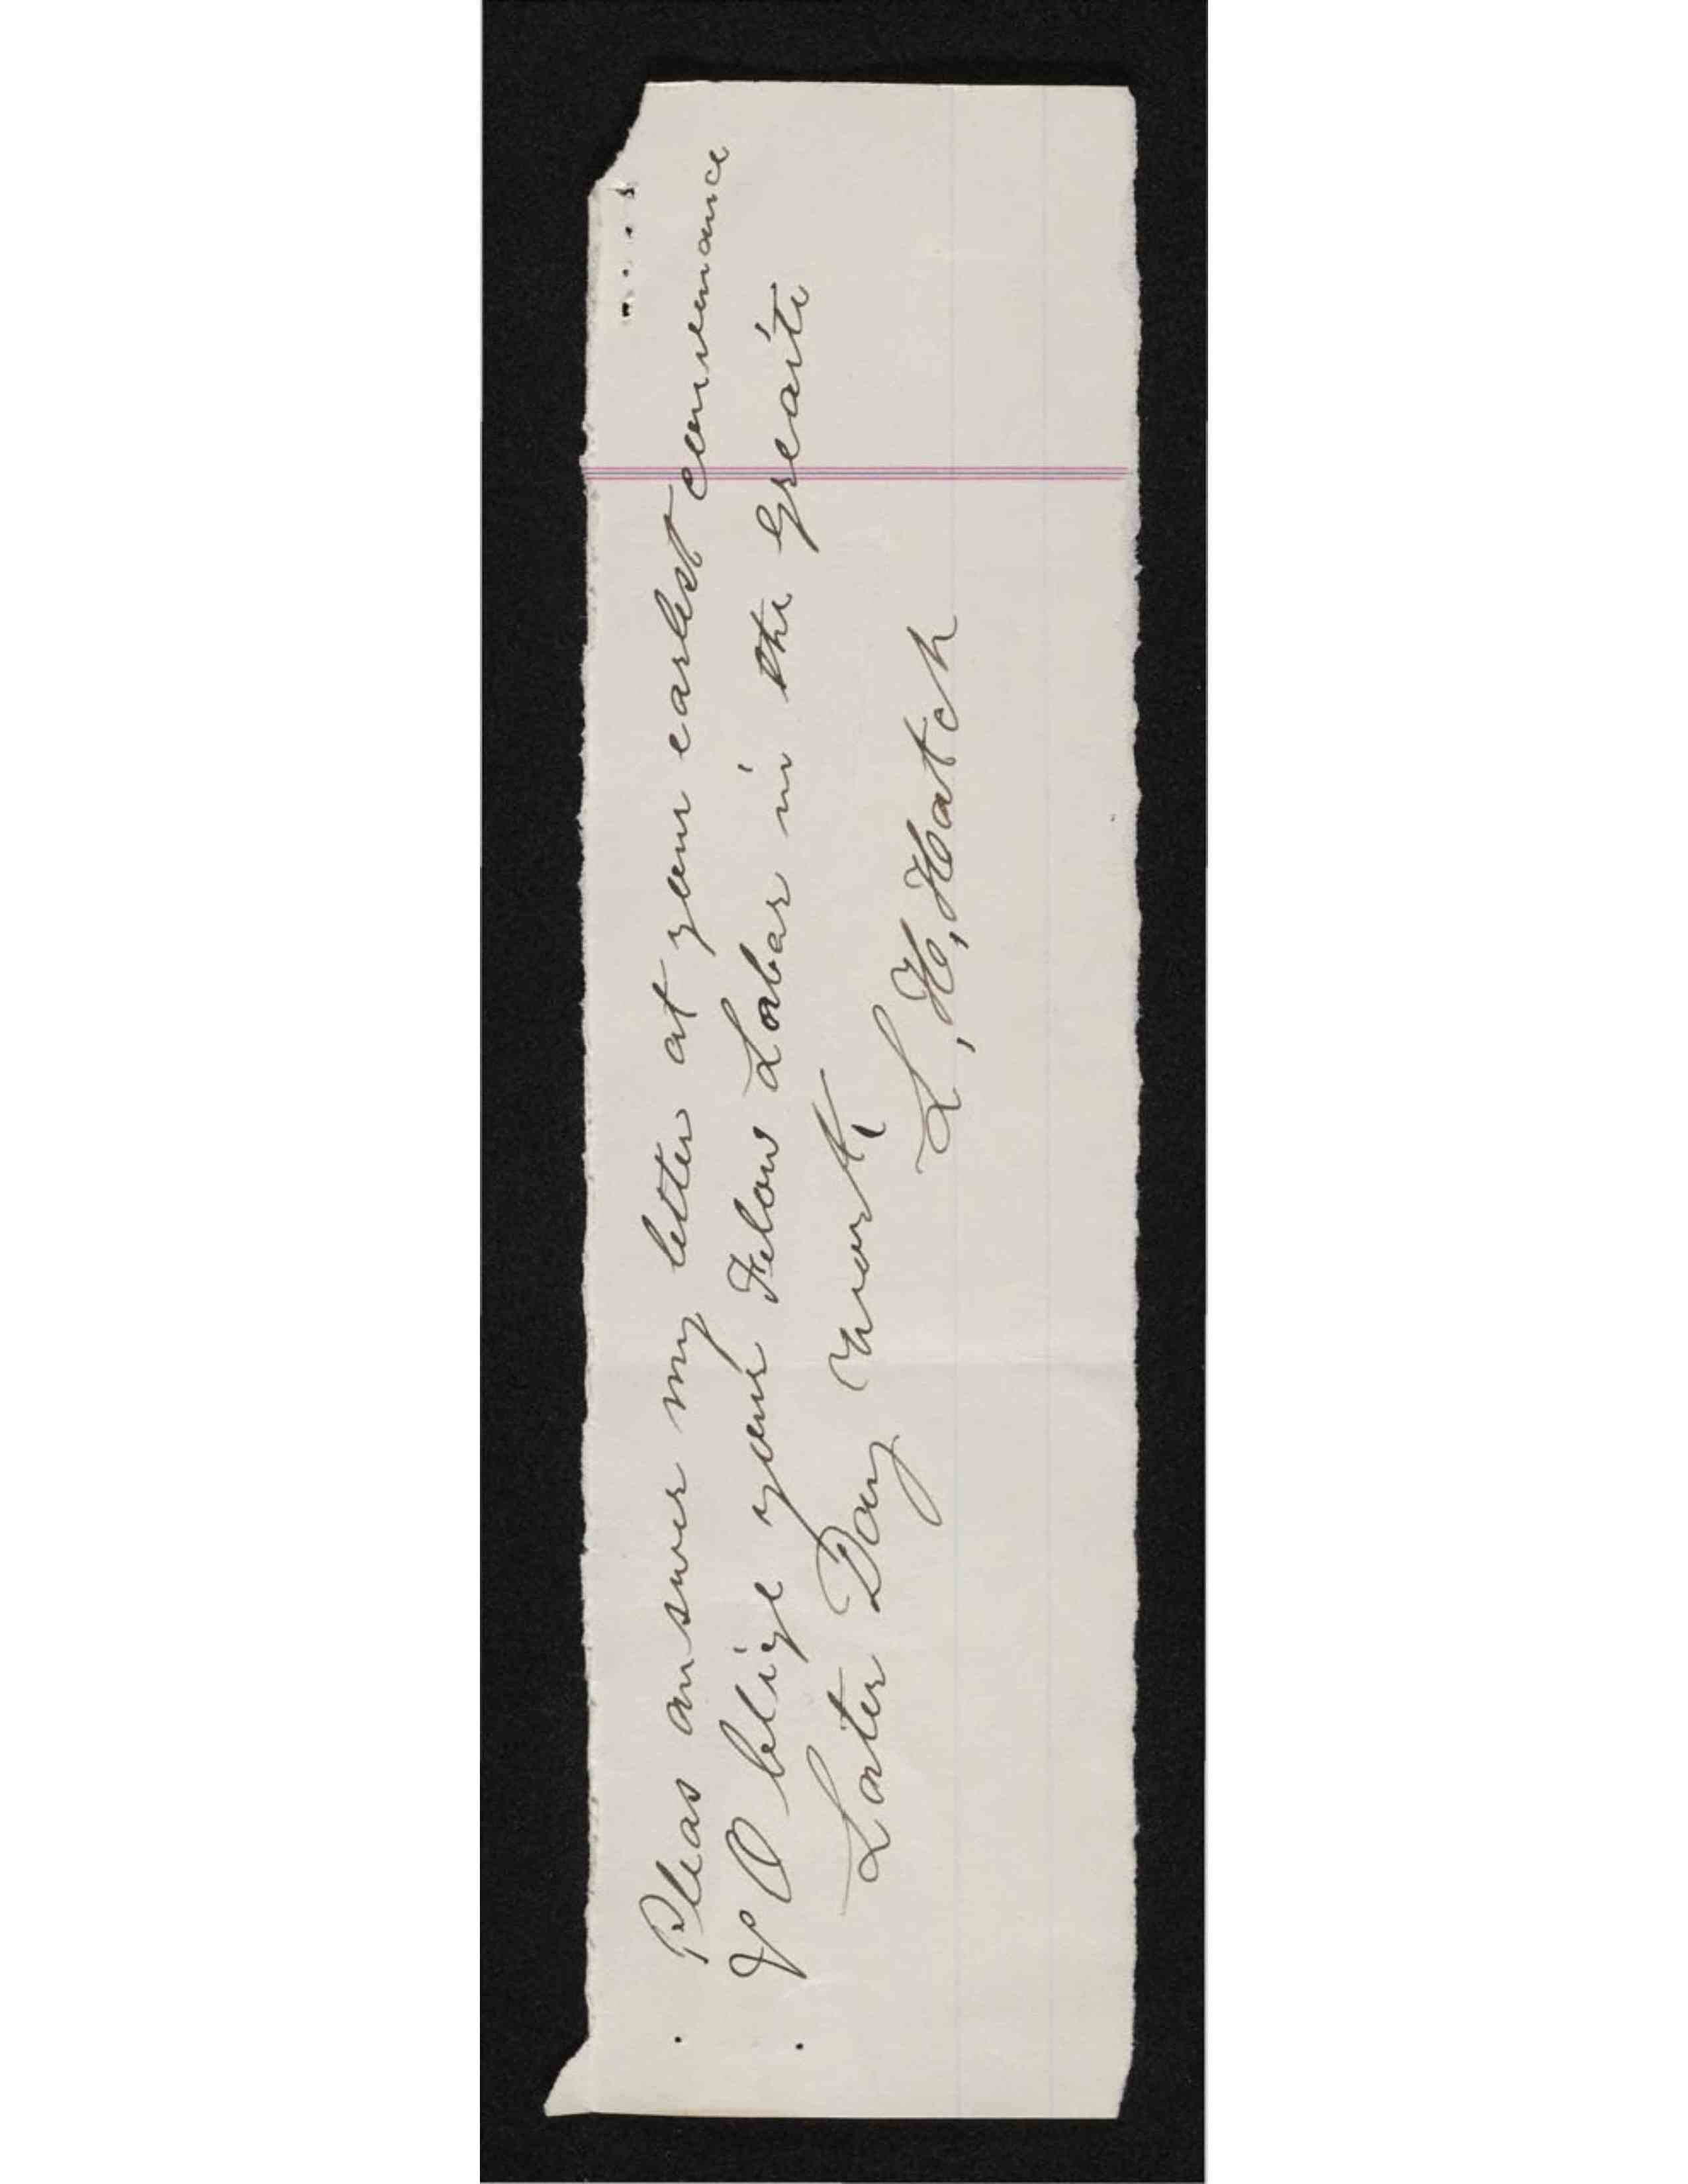 Pleas answer my letter at your earlest convenance
& O blige your Felow Labar in the Greaite
Later Day work
L, H, Hatch